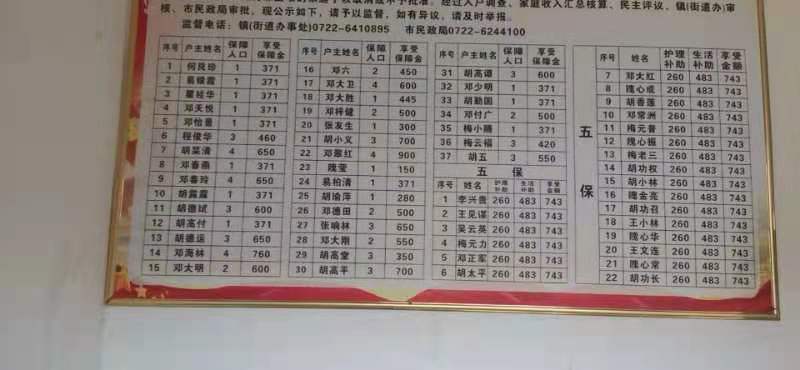 核、市民政局审批，现公示如下，请予以监督，如有异议，请及时举报。
监督电话：镇(街道办事处)0722-6410895 市民政局0722-6244100
序号 户主姓名 保障人口 享受保障金
1 何贝珍 1 371
2 易嫦霞 1 371
3 瞿桂华 1 371
4 邓天悦 1 371
5 邓怡景 1 371
6 程俊华 3 460
7 胡菜清 4 650
8 邓春燕 1 371
9 邓善玲 4 650
10 胡露露 1 371
11 胡德斌 3 600
12 胡高付 1 371
13 胡德运 3 650
14 邓海林 4 760
15 邓大明 2 600
序号 户主姓名 保障人口 享受保障金
16 邓六 2 450
17 邓大卫 4 600
18 邓大胜 1 445
19 邓梓健 2 500
20 张友生 1 300
21 胡小义 3 700
22 邓翠红 4 900
23 隗莹 1 150
24 易柏清 1 371
25 胡渝萍 1 280
26 邓德田 2 500
27 张响林 3 650
28 邓大刚 2 550
29 胡高堂 2 350
30 胡高平 3 700
序号 户主姓名 保障人口 享受保障金
31 胡高谭 3 600
32 邓少明 1 371
33 胡勤国 1 371
34 邓付广 2 500
35 梅小随 1 371
36 梅云福 3 420
37 胡五 3 550
五 保
序号 姓名 护理补助 生活补助 享受金额
1 李兴贵 260 483 743
2 王见谋 260 483 743
3 吴云英 260 483 743
4 梅元力 260 483 743
5 邓正军 260 483 743
6 胡太平 260 483 743
五保
序号 姓名 护理补助 生活补助 享受金额
7 邓大红 260 483 743
8 隗心成 260 483 743
9 胡香莲 260 483 743
10 邓常洲 260 483 743
11 梅元普 260 483 743
12 隗心振 260 483 743
13 梅老三 260 483 743
14 胡功权 260 483 743
15 胡小林 260 483 743
16 隗金亮 260 483 743
17 胡功召 260 483 743
18 王小林 260 483 743
19 隗心华 260 483 743
20 王文连 260 483 743
21 隗心常 260 483 743
22 胡功长 260 483 743